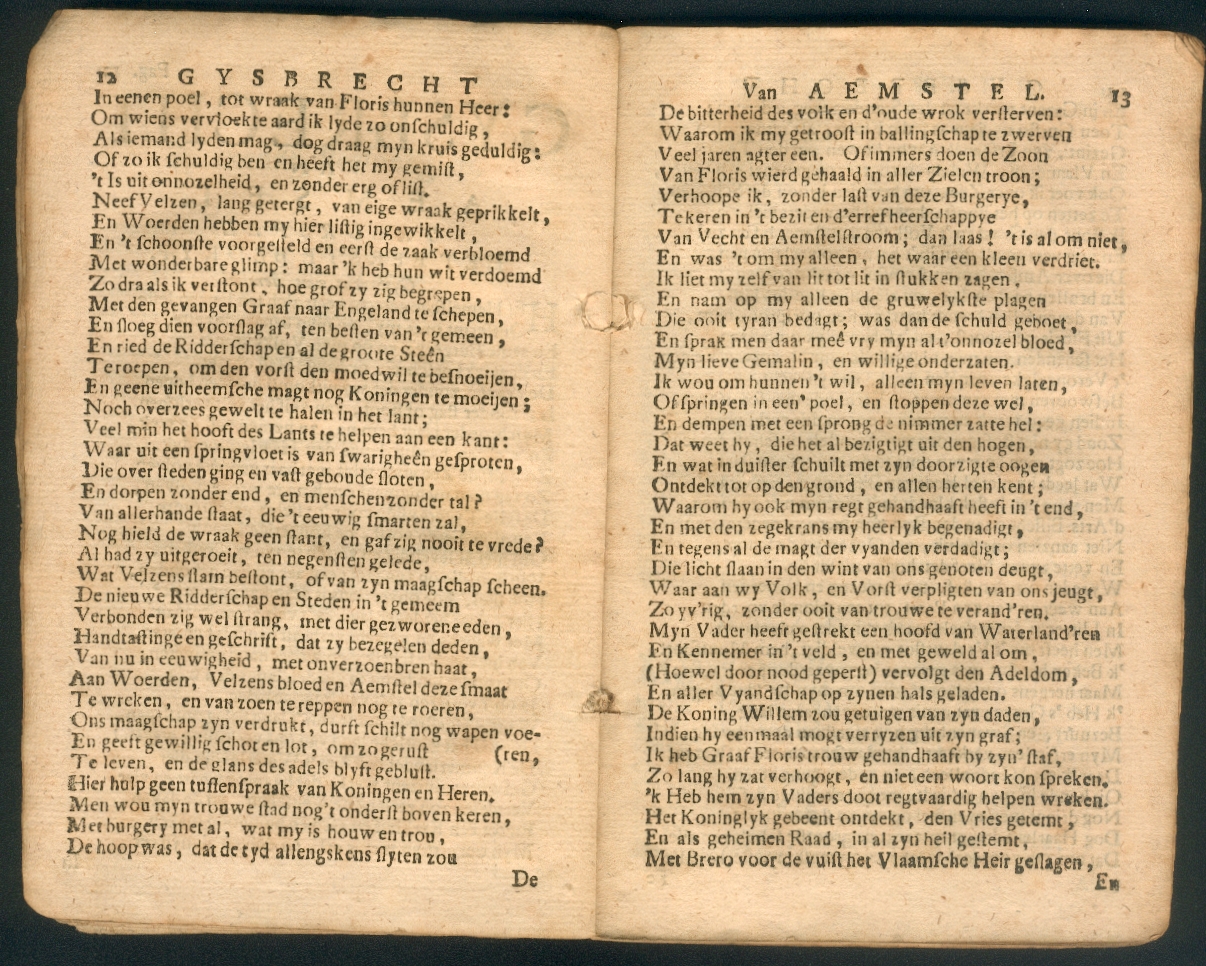 12 GYSBRECHT
In eenen poel, tot wraak van Floris hunnen Heer:
Om wiens vervloekte aard ik lyde zo onſchuldig,
Als iemand lyden mag, dog draag myn kruis geduldig:
Of zo ik ſchuldig ben en heeft het my gemiſt,
't Is uit onnozelheid, en zonder erg of liſt.
Neef Velzen, lang getergt, van eige wraak geprikkelt,
En Woerden hebben my hier liſtig ingewikkelt,
En 't ſchoonſte voorgeſteld en eerſt de zaak verbloemd
Met wonderbare glimp: maar 'k heb hun wit verdoemd
Zo dra als ik verſtont, hoe grof zy zig begrepen,
Met den gevangen Graaf naar Engeland te ſchepen,
En ſloeg dien voorſlag af, ten beſten van 't gemeen,
En ried de Ridderſchap en al de groote Steên
Te roepen, om den vorſt den moedwil te beſnoeijen,
En geene uitheemſche magt nog Koningen te moeijen;
Noch overzees gewelt te halen in het lant;
Veel min het hooft des Lants te helpen aan een kant:
Waar uit een ſpringvloet is van ſwarigheên geſproten,
Die over ſteden ging en vaſt geboude ſloten,
En dorpen zonder end, en menſchen zonder tal?
Van allerhande ſtaat, die 't eeuwig ſmarten zal,
Nog hield de wraak geen ſtant, en gaf zig nooit te vrede?
Al had zy uitgeroeit, ten negenſten gelede,
Wat Velzens ſtam beſtont, of van zyn maagſchap ſcheen.
De nieuwe Ridderſchap en Steden in 't gemeem
Verbonden zig wel ſtrang, met dier gezworene eeden,
Handtaſtinge en geſchrift, dat zy bezegelen deden,
Van nu in eeuwigheid, met onverzoenbren haat,
Aan Woerden, Velzens bloed en Aemſtel deze ſmaat
Te wreken, en van zoen te reppen nog te roeren,
Ons maagſchap zyn verdrukt, durft ſchilt nog wapen voe-
En geeft gewillig ſchot en lot, om zo geruſt (ren,
Te leven, en de glans des adels blyft gebluſt.
Hier hulp geen tuſſenſpraak van Koningen en Heren.
Men wou myn trouwe ſtad nog 't onderſt boven keren,
Met burgery met al, wat my is houw en trou,
De hoop was, dat de tyd allengskens ſlyten zou
De
Van AEMSTEL. 13
De bitterheid des volk en d'oude wrok verſterven:
Waarom ik my getrooſt in ballingſchap te zwerven
Veel jaren agter een. Of immers doen de Zoon
Van Floris wierd gehaald in aller Zielen troon;
Verhoope ik, zonder laſt van deze Burgerye,
Te keren in 't bezit en d'erref heerſchappye
Van Vecht en Aemſtelſtroom; dan laas! 't is al om niet,
En was 't om my alleen, het waar een kleen verdriet.
Ik liet my zelf van lit tot lit in ſtukken zagen.
En nam op my alleen de gruwelykſte plagen
Die ooit tyran bedagt; was dan de ſchuld geboet,
En ſprak men daar meê vry myn al t'onnozel bloed,
Myn lieve Gemalin, en willige onderzaten.
Ik wou om hunnen 't wil, alleen myn leven laten,
Of ſpringen in een' poel, en ſtoppen deze wel,
En dempen met een ſprong de nimmer zatte hel:
Dat weet hy, die het al bezigtigt uit den hogen,
En wat in duiſter ſchuilt met zyn doorzigte oogen
Ontdekt tot op den grond, en allen herten kent;
Waarom hy ook myn regt gehandhaaft heeft in 't end,
En met den zegekrans my heerlyk begenadigt,
En tegens al de magt der vyanden verdadigt;
Die licht ſlaan in den wint van ons genoten deugt,
Waar aan wy Volk, en Vorſt verpligten van ons jeugt,
Zo yv'rig, zonder ooit van trouwe te verand'ren.
Myn Vader heeft geſtrekt een hoofd van Waterland'ren
En Kennemer in 't veld, en met geweld al om,
(Hoewel door nood geperſt) vervolgt den Adeldom,
En aller Vyandſchap op zynen hals geladen.
De Koning Willem zou getuigen van zyn daden,
Indien hy eenmaal mogt verryzen uit zyn graf;
Ik heb Graaf Floris trouw gehandhaaft by zyn' ſtaf,
Zo lang hy zat verhoogt, en niet een woort kon ſpreken.
'k Heb hem zyn Vaders doot regtvaardig helpen wreken.
Het Koninglyk gebeent ontdekt, den Vries getemt,
En als geheimen Raad, in al zyn heil geſtemt,
Met Brero voor de vuiſt het Vlaamſche Heir geſlagen,
En